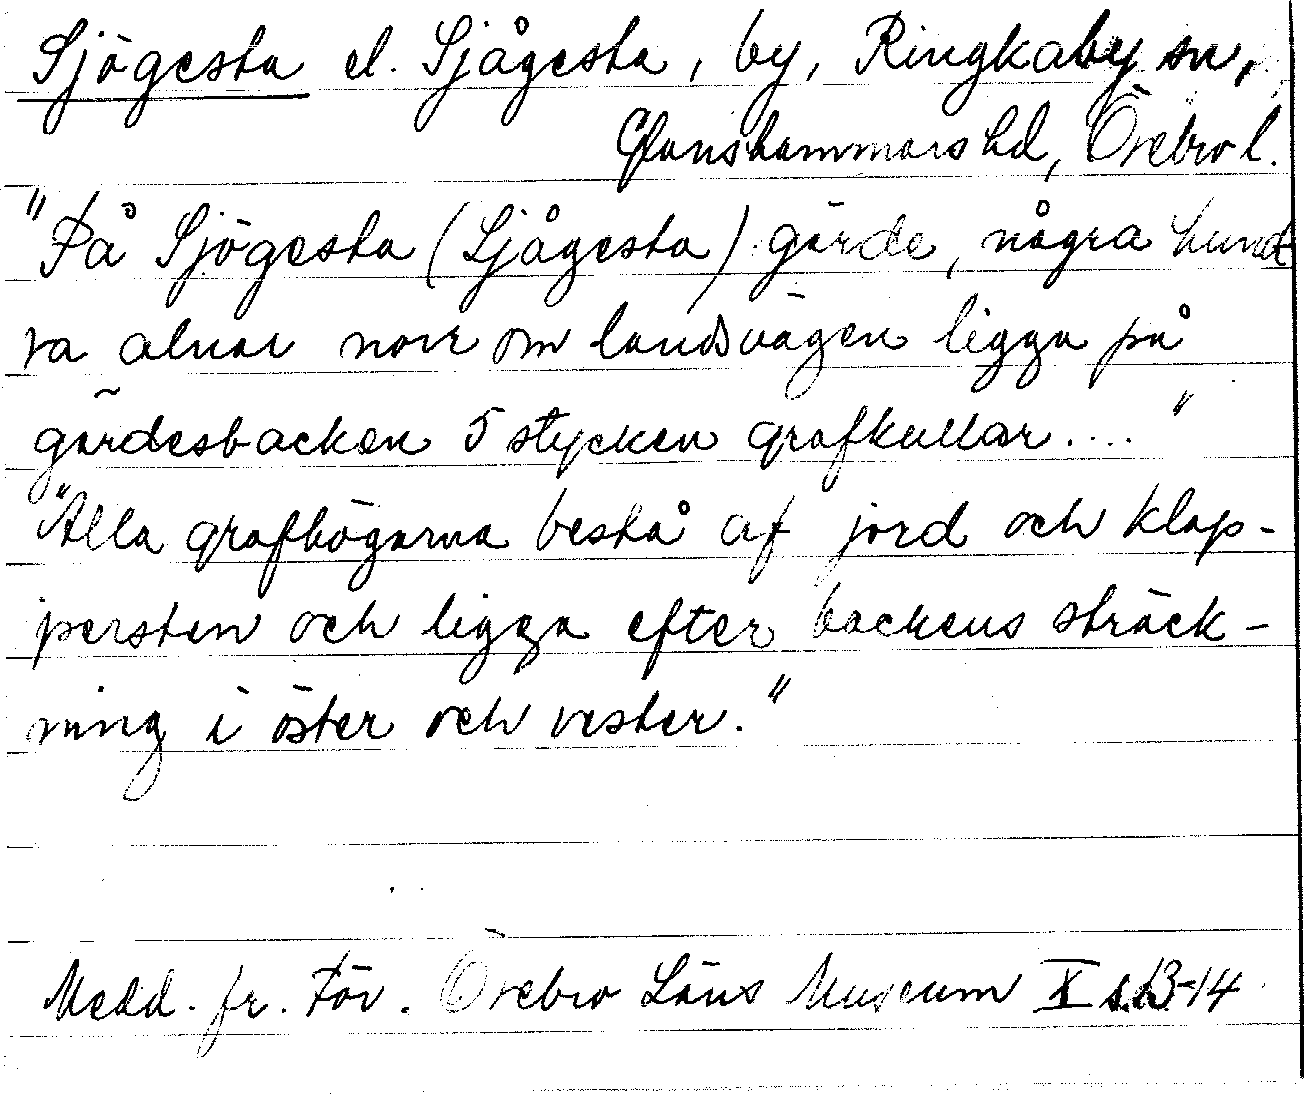 Sjögesta el. Sjågesta, by, Ringkaby sn,
Glanshammars hd, Örebro l.
"På Sjögesta (Sjågesta) gärde, några hund
ra alnar norr om landsvägen ligga på
gärdesbacken 5 stycken grafkullar...."
"Alla grafhögarna bestå af jord och klap-
persten och ligga efter backens sträck-
ning i öster och vester."
Medd. fr. För. Örebro Läns Museum X s.13-14